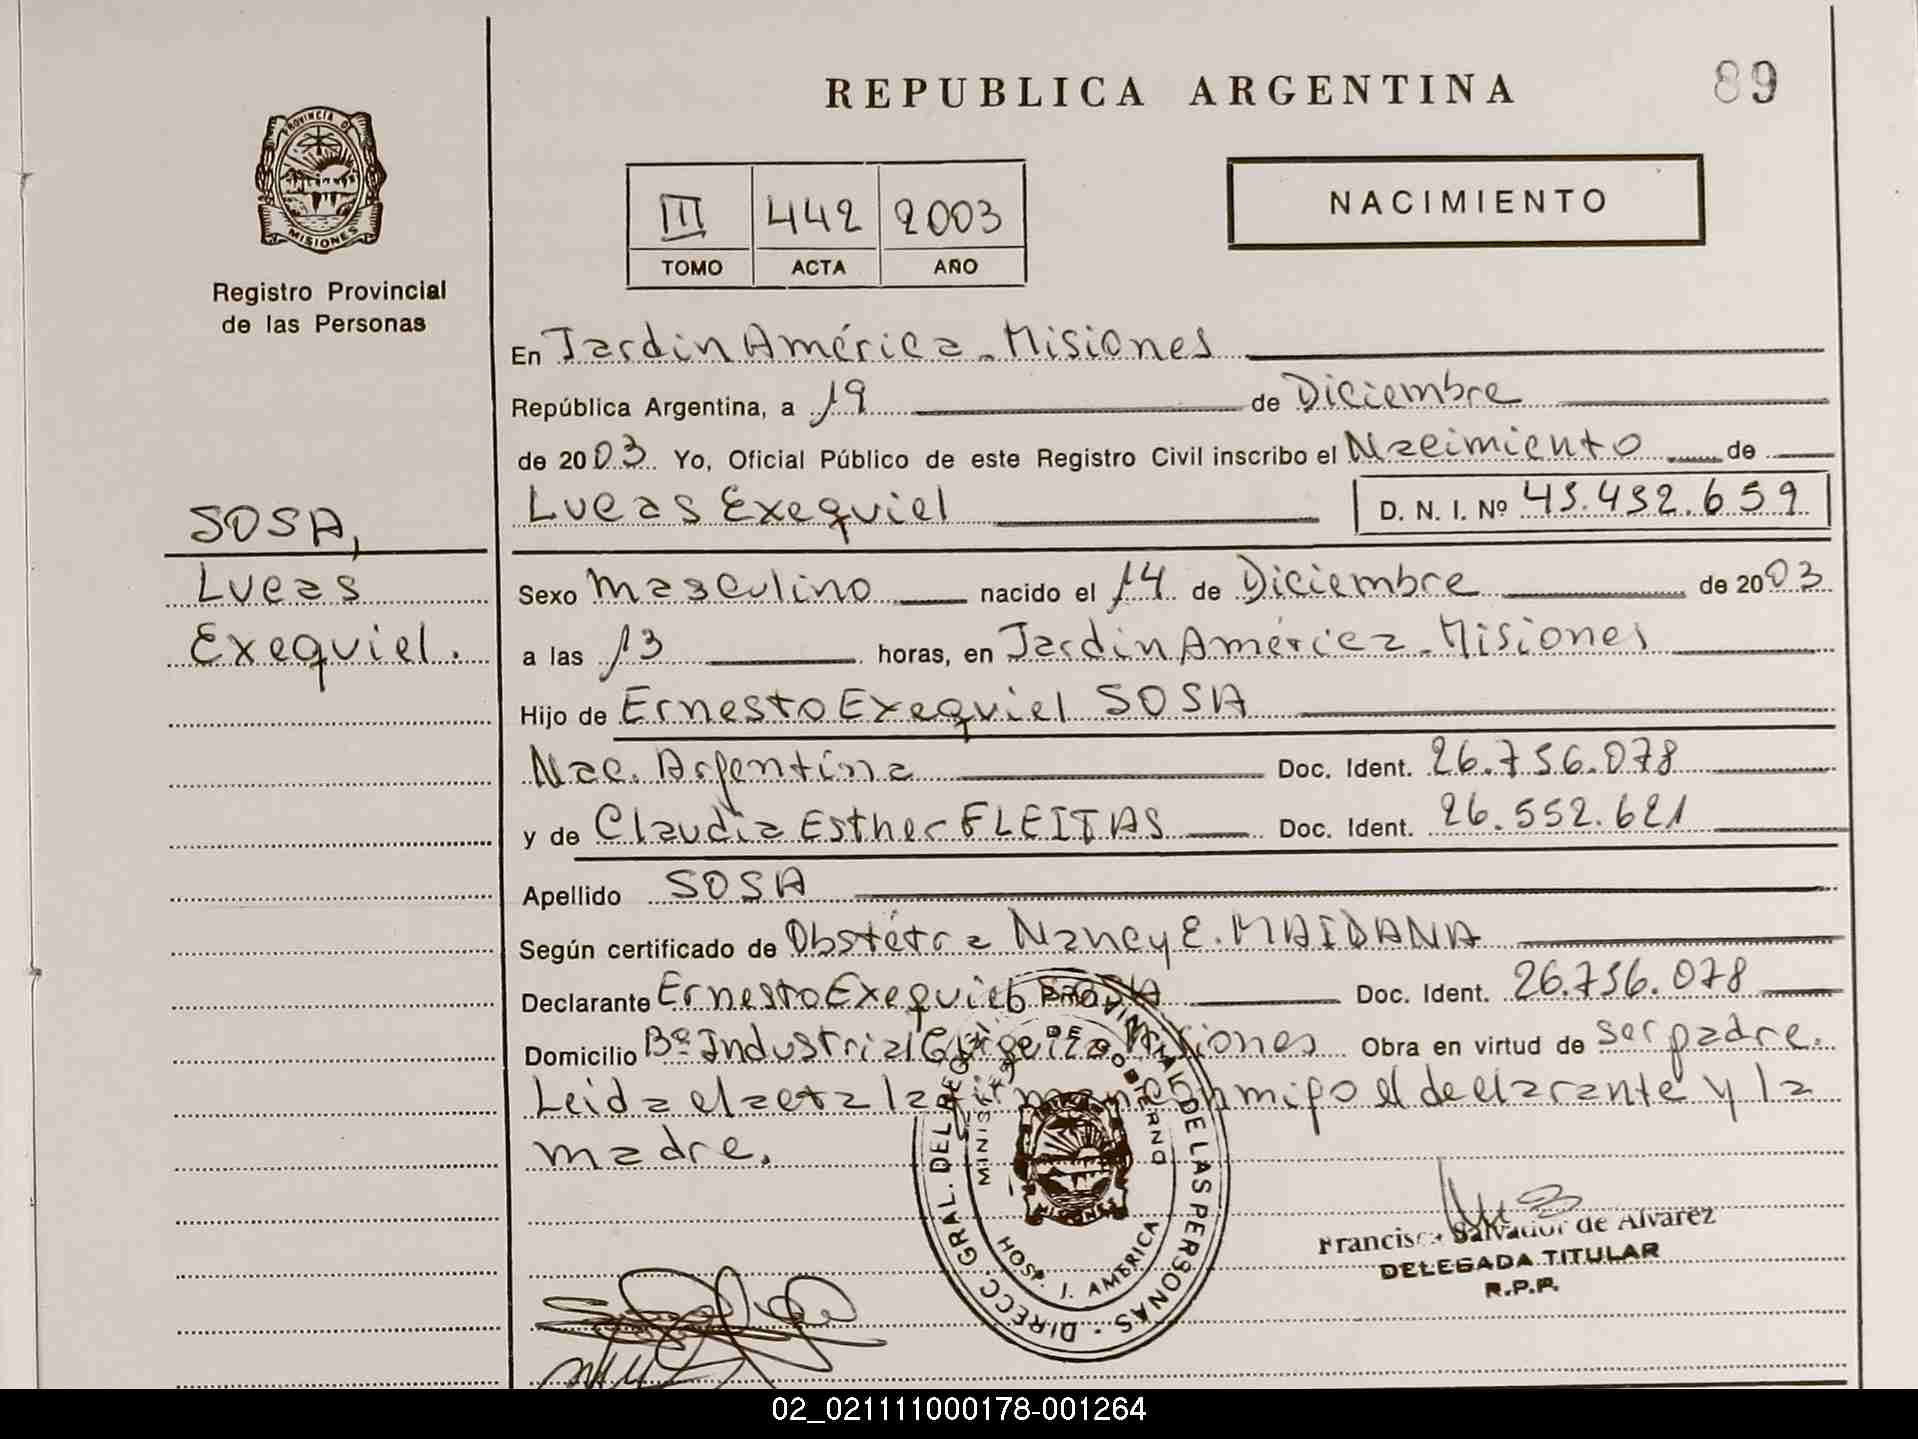 REPUBLICA ARGENTINA
89
PROVINCIA DE
MISIONES
Registro Provincial
de las Personas
III 442 2003
TOMO ACTA AÑO
NACIMIENTO
En Jardin América - Misiones
República Argentina, a 19 de Diciembre
de 2003 Yo, Oficial Público de este Registro Civil inscribo el Nacimiento de
Lucas Exequiel D. N. I. Nº 45.432.659
SOSA,
Lucas
Exequiel.
Sexo masculino nacido el 14 de Diciembre de 2003
a las 13 horas, en Jardin América - Misiones
Hijo de Ernesto Exequiel SOSA
Nac. Argentina Doc. Ident. 26.756.078
y de Claudia Esther FLEITAS Doc. Ident. 26.552.621
Apellido SOSA
Según certificado de Obstétra Nancy E. MAIDANA
Declarante Ernesto Exequiel SOSA Doc. Ident. 26.756.078
Domicilio Bº Industrial Misiones Obra en virtud de ser padre.
Leida el acta la firman conmigo el declarante y la
madre.
DIRECC. GRAL. DEL REG. PROVINCIAL DE LAS PERSONAS
MINISTERIO DE GOBIERNO
MISIONES
HOSP. J. AMERICA
Francisca Salvador de Alvarez
DELEGADA TITULAR
R.P.P.
02_021111000178-001264